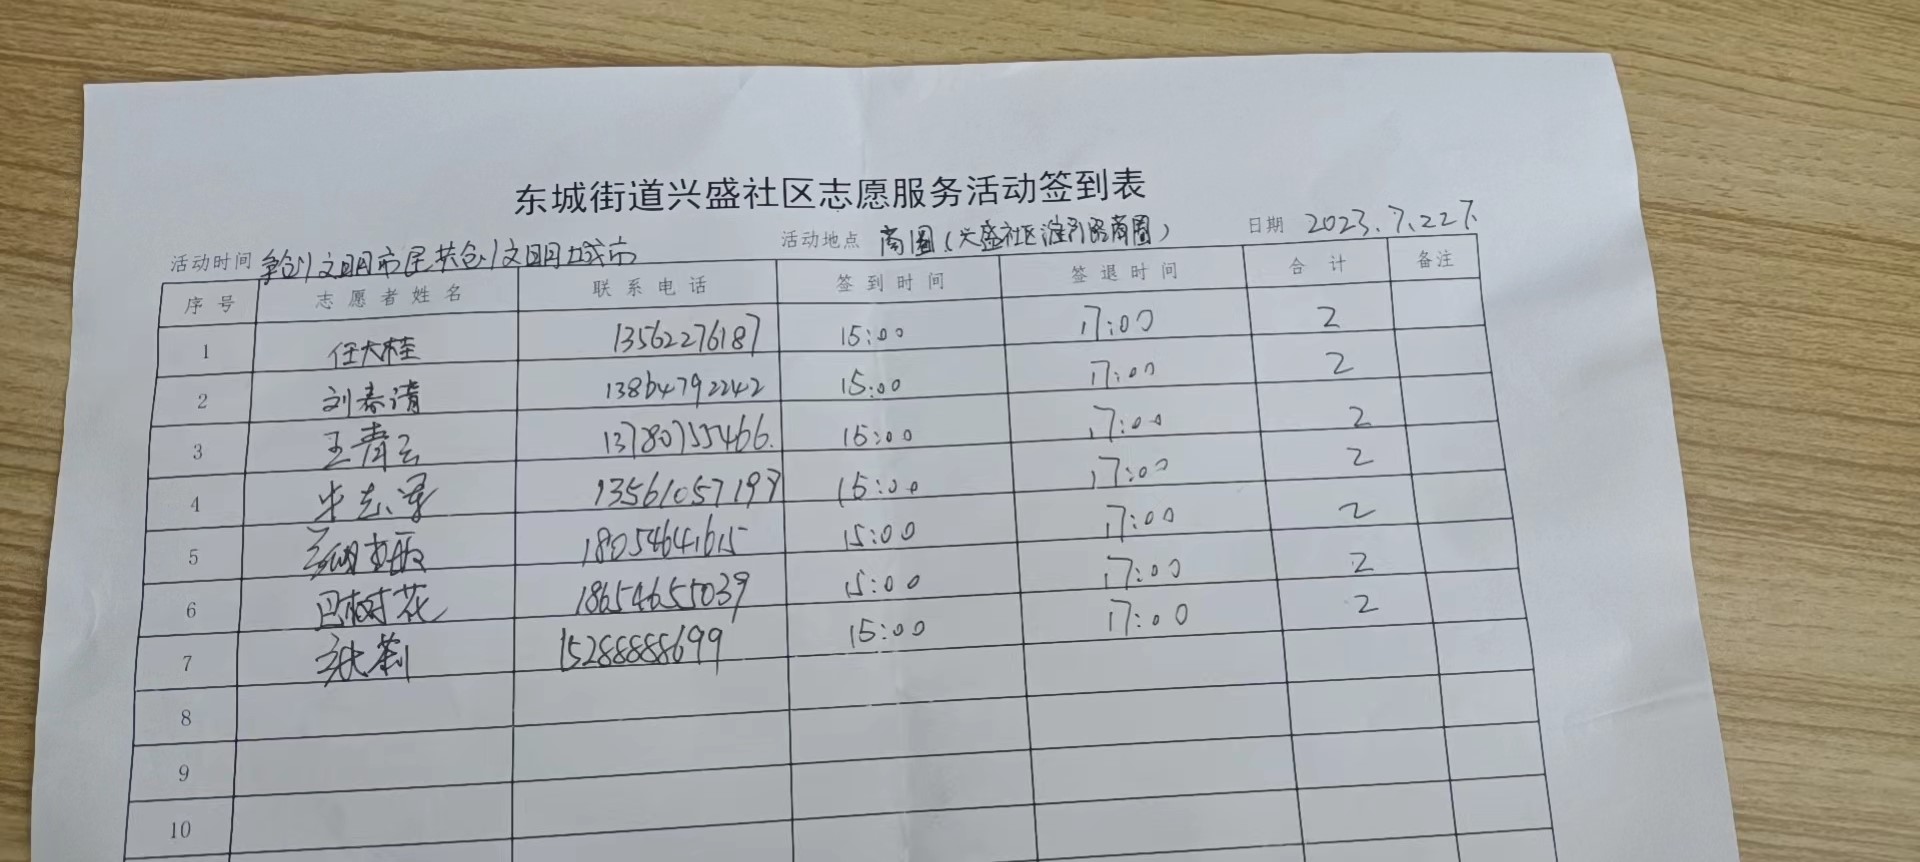 东城街道兴盛社区志愿服务活动签到表
活动时间 争创文明市民共创文明城市 活动地点 商圈(兴盛社区淄博路商圈) 日期 2023.7.22下
序号 志愿者姓名 联系电话 签到时间 签退时间 合计 备注
1 任大桂 13562276187 15:00 17:00 2
2 刘春清 13864792242 15:00 17:00 2
3 王青云 13780755466. 15:00 17:00 2
4 13561057197 15:00 17:00 2
5 18054641615 15:00 17:00 2
6 巴树花 18654655039 15:00 17:00 2
7 15288888699 15:00 17:00 2
8
9
10